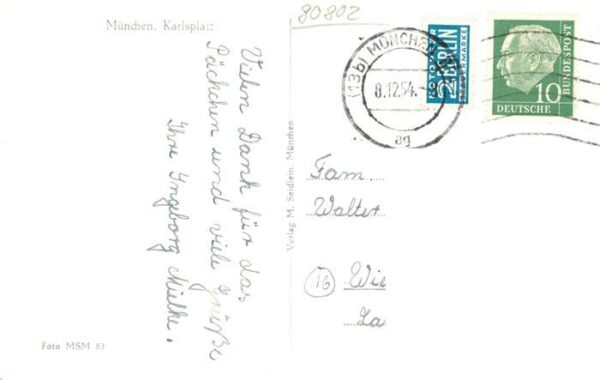 80802
München, Karlsplatz
Vielen Dank für das
Päckchen und viele Grüße
Ihre Ingeborg Mielke.
Foto MSM 83
Verlag M. Seidlein, München
(13b) MÜNCHEN
8.12.54.
ag
NOTOPFER
2 BERLIN
STEUERMARKE
DEUTSCHE
BUNDESPOST
10
Fam.
Walter
16 Wie
La